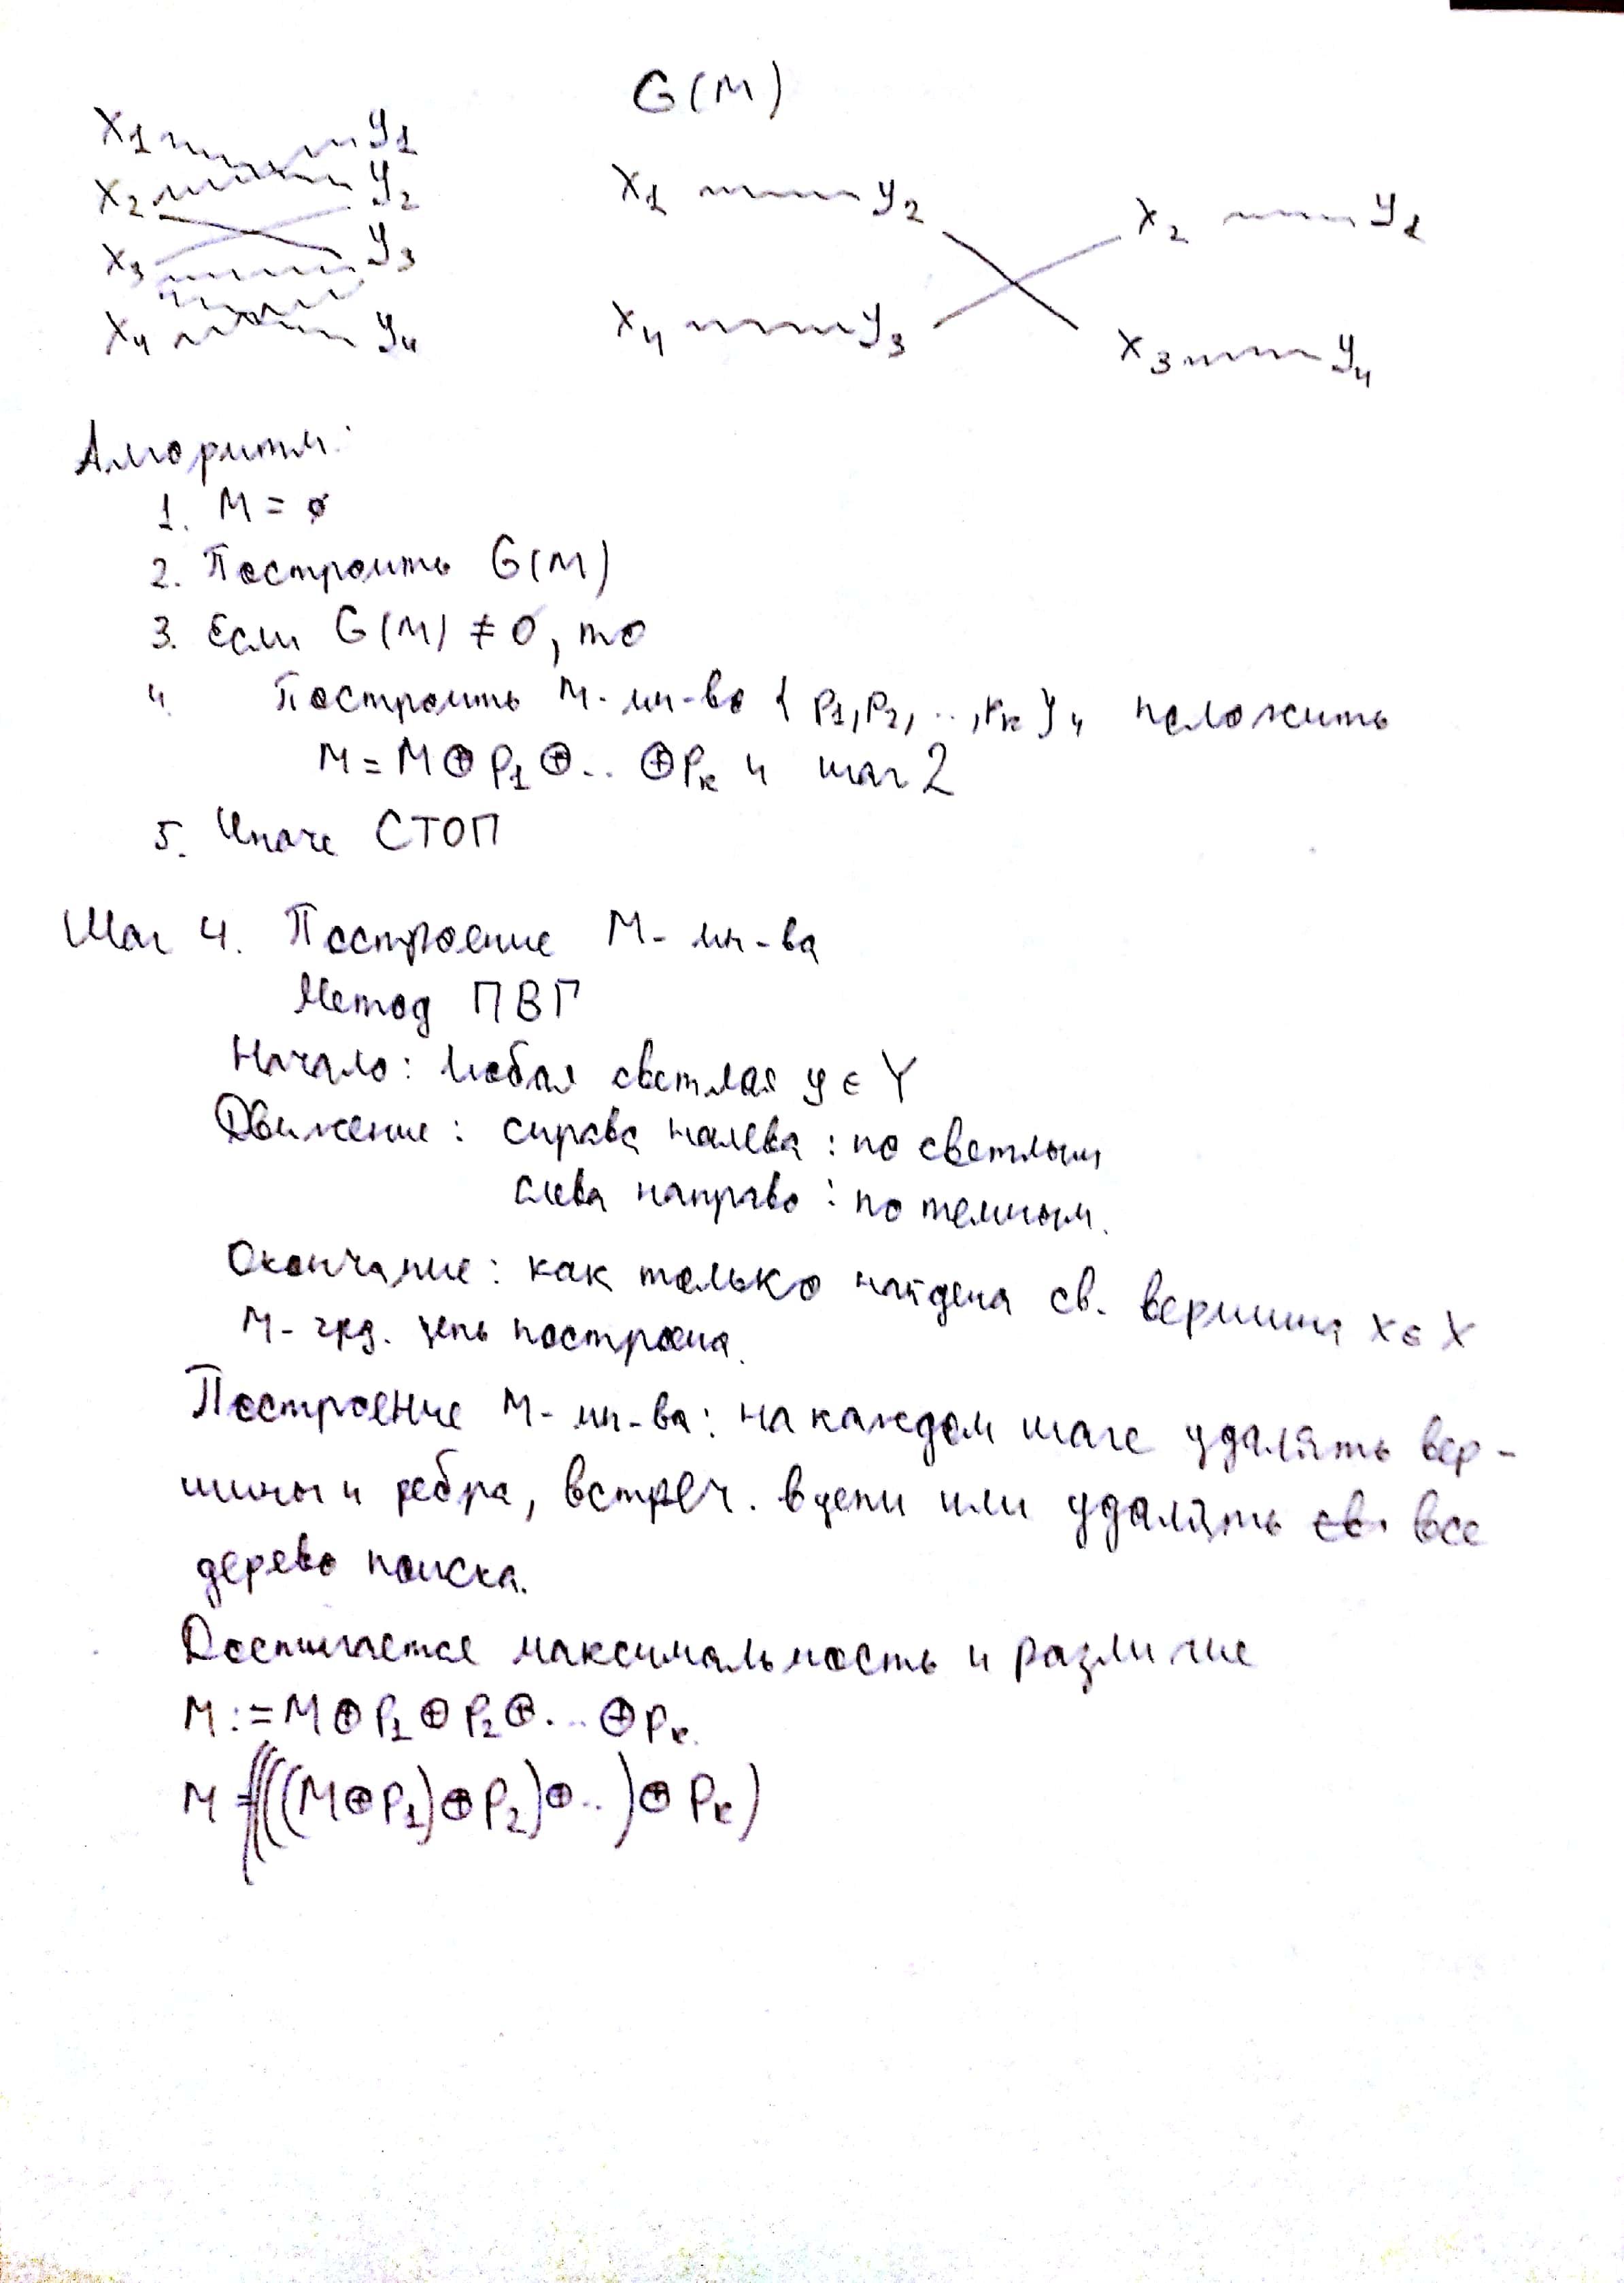 G(M)
x1 y1
x2 y2
x3 y3
x4 y4
x1 y2 x2 y1
x4 y3 x3 y4
Алгоритм:
1. M = ø
2. Построить G(M)
3. Если G(M) ≠ 0, то
4. Построить M-мн-во { P1, P2, .., Pk } и положить
M = M ⊕ P1 ⊕ .. ⊕ Pk и шаг 2
5. Иначе СТОП
Шаг 4. Построение M-мн-ва
Метод ПВГ
Начало: любая светлая y ∈ Y
Движение: справа налево: по светлым
слева направо: по темным.
Окончание: как только найдена св. вершина x ∈ X
M-чрд. цепь построена.
Построение M-мн-ва: на каждом шаге удалять вер-
шины и ребра, встреч. в цепи или удалять св. все
дерево поиска.
Достигается максимальность и различие
M := M ⊕ P1 ⊕ P2 ⊕ ... ⊕ Pk.
M = ((((M ⊕ P1) ⊕ P2) ⊕ ..) ⊕ Pk)